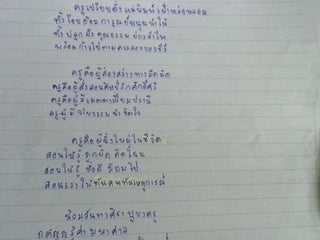 ครูเปรียบดั่งแม่พิมพ์ เบ้าหล่อหลอม
ทั้งโอบอ้อม การุณย์ หนุนนำให้
ทั้งปลูกฝังคุณธรรม
พร้อมก้าวไปตามครรลองของชีวี
ครูคือผู้ส่องสว่างทางมืดมิด
ครูคือผู้สั่งสอนศิษย์รักศักดิ์ศรี
ครูคือผู้มีเมตตาเปี่ยมปรานี
ครูผู้มีจริยธรรมนำจิตใจ
ครูคือผู้ยิ่งใหญ่ในชีวิต
สอนให้รู้ ถูกผิด คิดไฉน
สอนให้รู้ ชั่วดี
สอนเราให้ทันคนทันเหตุการณ์
น้อมวันทาศิระบูชาครู
กตัญญูรู้ค่ามหาศาล